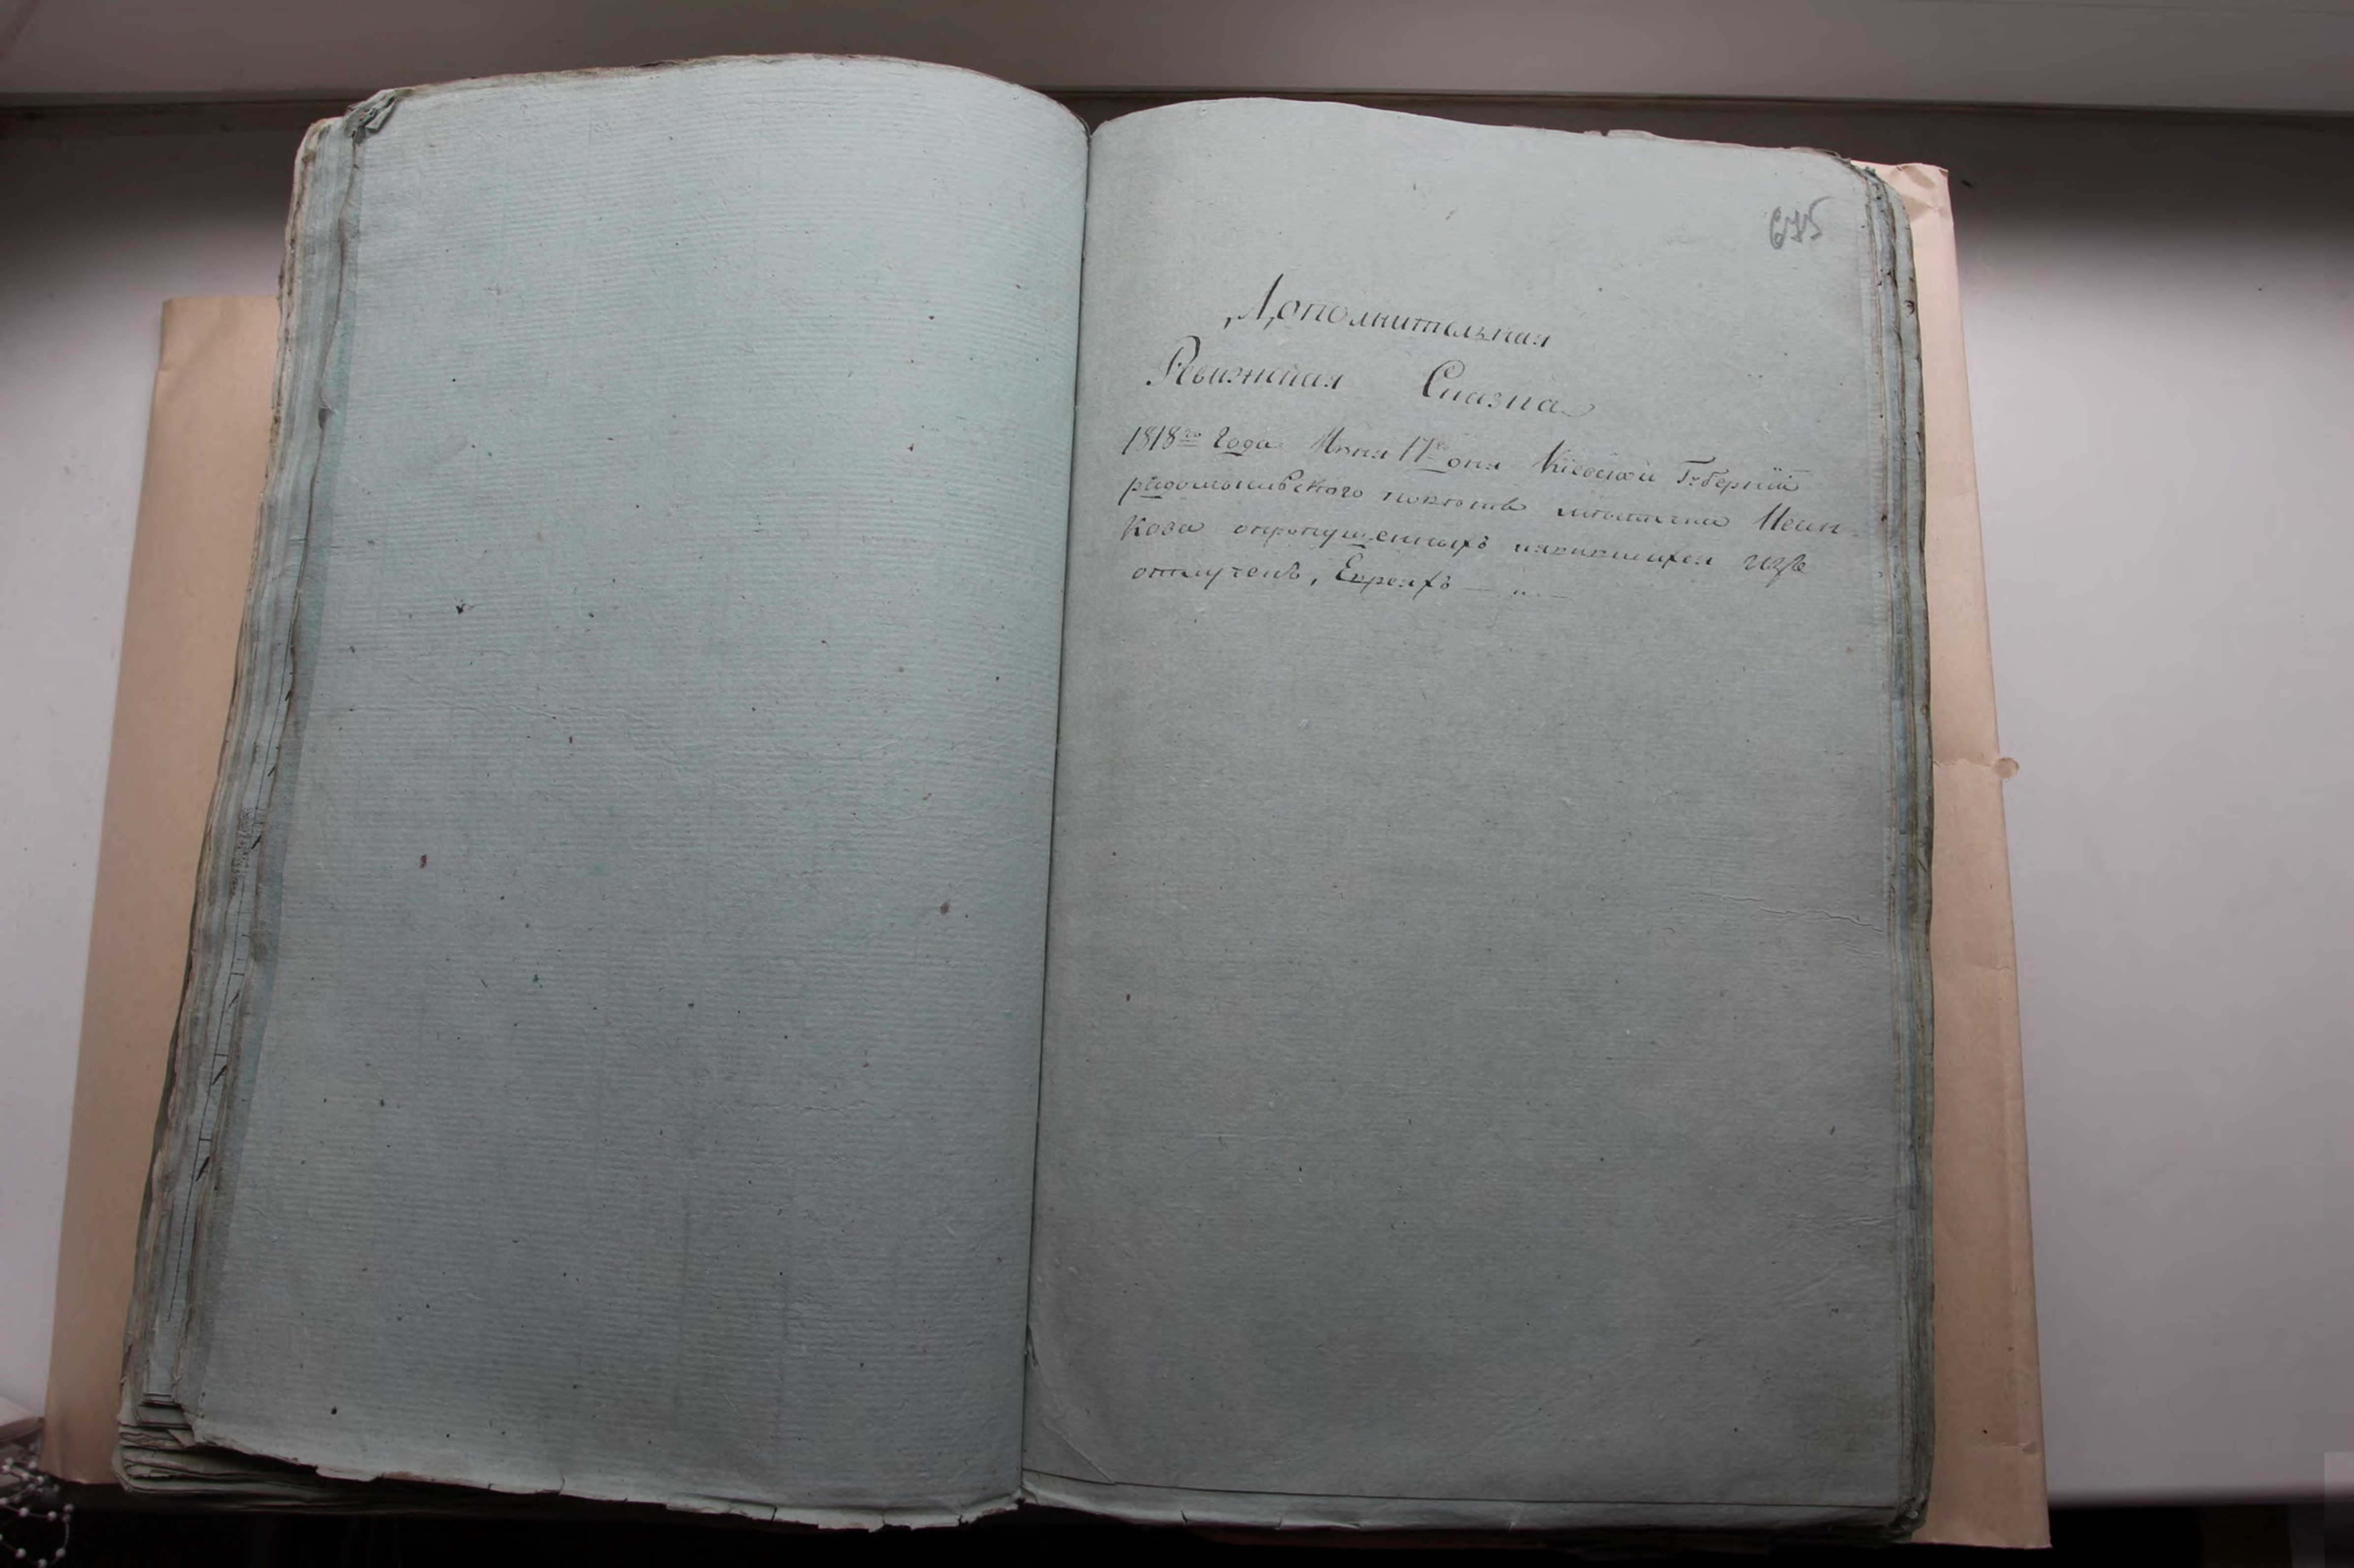 675
Дополнительная
Ревизкная Сказка
1818го Года Июня 17го дня Кіевской Губерніи
радомысльского повѣта местечка Иван
кова о пропущенныхъ и явившихся изъ
отлучекъ, Евреяхъ — „ —